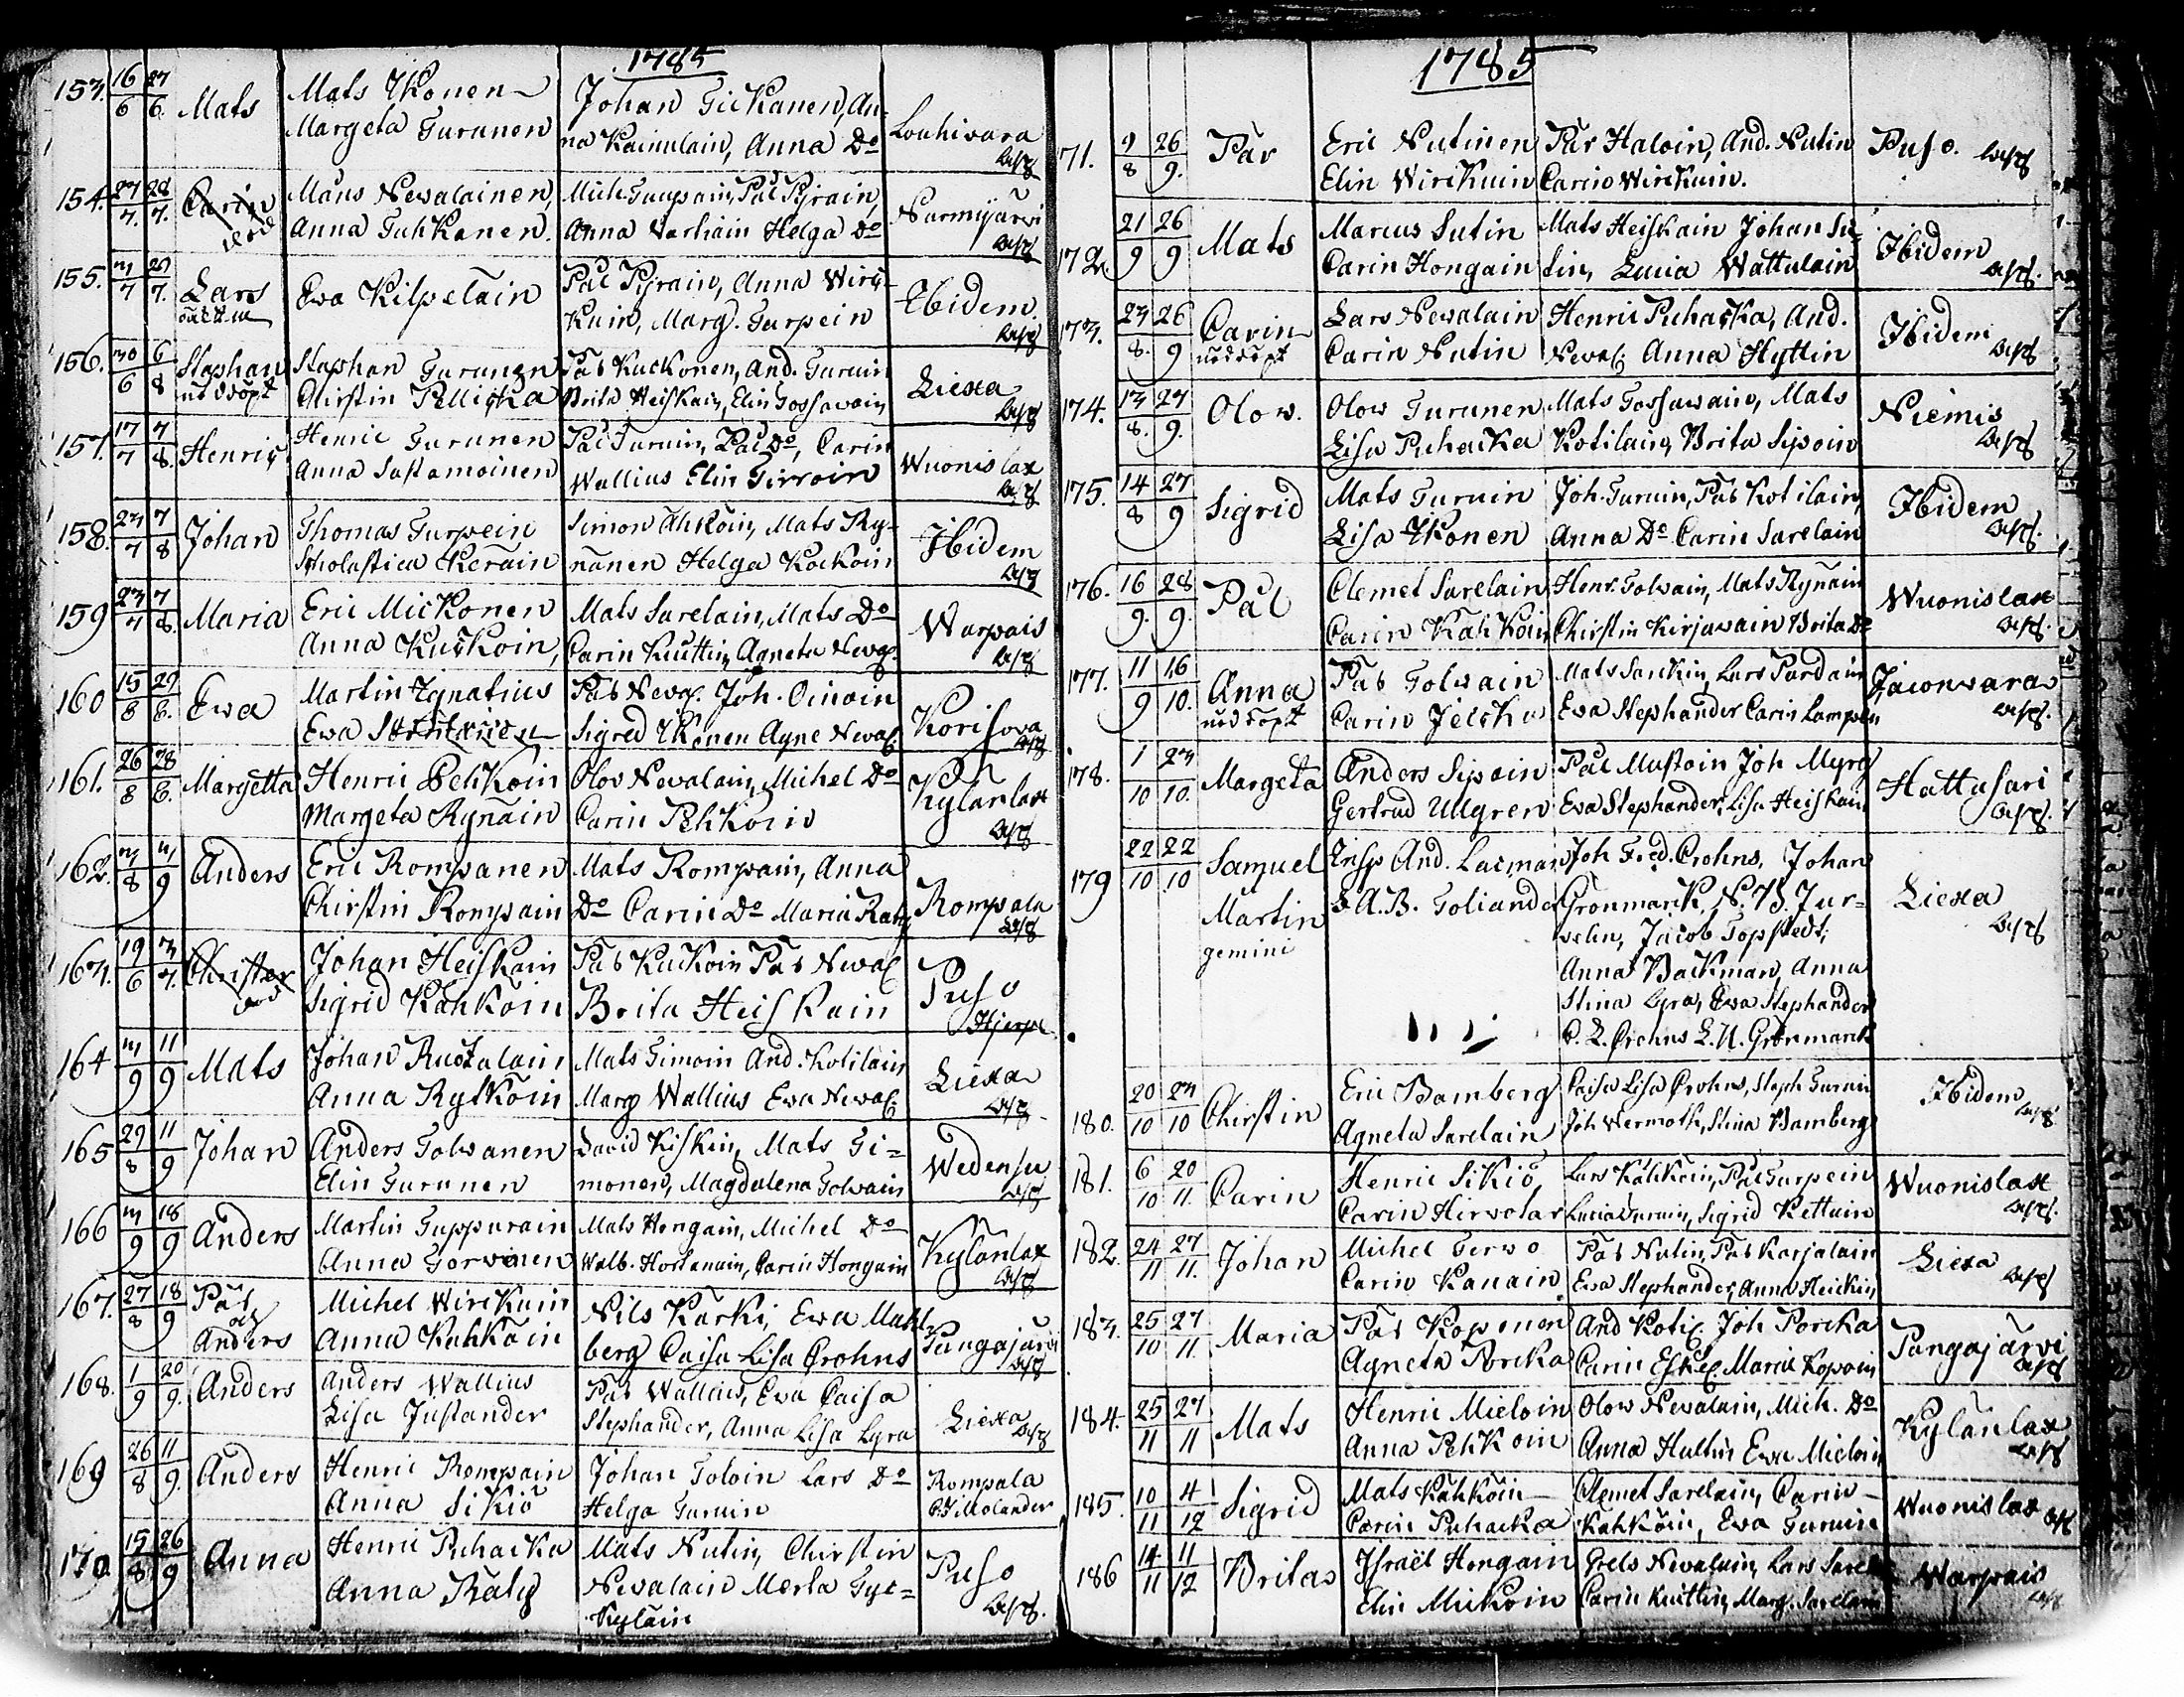 1785
153. 16/6 27/6. Mats
Mats Ikonen
Margeta Turunen
Johan Tickanen, An-
na Kainulain, Anna Do
Louhivara
154. 27/7. 28/7. Carin
död
Måns Newalainen,
Anna Tuhkanen.
Mich Turpain, Pål Pyrain,
Anna Warhain Helga Do
Nurmijärvi
155. 3/7 29/7. Lars
Ewa Kilpelain
Pål Pyrain, Anna Wirc-
kuin, Marg. Turpein
Ibidem.
156. 30/6 6/8 Staphan
nöddöpt
Staphan Turunen
Chirstin Pellicka
Pår Kuckonen, And. Turuin
Brita Heiskain, Elin Tossavain
Liexa
157. 17/7 7/8. Henric
Henric Turunen
Anna Sastamoinen
Pål Turuin, Pål Do, Carin
Wallius Elin Tirroin
Wuonislax
158. 23/7 7/8 Johan
Thomas Turpein
Scholastica Kerain
Simon Ahkoin, Mats Ry-
nänen Helga Kockoin
Ibidem
159 23/7 7/8. Maria
Eric Mickonen
Anna Kuckoin,
Mats Sarelain, Mats Do
Carin Kuittin, Agneta Neval
Warpais
160 15/8 29/8. Ewa
Martin Ignatius
Ewa
Pår Neval. Joh. Oinoin
Sigred Ikonen Agne Neval
Korisova
161. 26/8 28/8. Margetta
Henric Pehkoin
Margeta Rynäin
Olov Nevalain, Michel Do
Carin Pehkoin
Kylänlax
162. 3/8 3/9 Anders
Eric Rompanen
Chirstin Rompain
Mats Rompain, Anna
Do Carin Do Maria Raty
Rompala
163. 19/6 3/7. Christer
död
Johan Heiskain
Sigrid Kähköin
Pår Kuckoin Pår Neval
Brita Heiskain
Puso
Hjerpe
164 3/9 11/9 Mats
Johan Ruotalain
Anna Rytköin
Mats Timoin And. Kotilain
Marg Wallius Ewa Neval
Liexa
165 29/8 11/9 Johan
Anders Tolwanen
Elin Turunen
David Kiskin, Mats Ti=
monen, Magdalena Tolvain
Wedensu
166 3/9 18/9 Anders
Martin Tuppurain
Anna Torvinen
Mats Hongain, Michel Do
Walb. Hortanain, Carin Hongain
Kylänlax
167. 27/8 18/9 Pål
och
Anders
Michel Wirckuin
Anna Kähköin
Nils Karki, Ewa Mahl-
berg Caisa Lisa Crohns
Pangajärvi
168. 1/9 20/9. Anders
Anders Wallius
Lisa Justander
Pår Wallius, Ewa Caisa
Stephander, Anna Lisa Lyra
Liexa
169 26/8 11/9. Anders
Henric Rompain
Anna Sikiö
Johan Toloin Lars Do
Helga Turuin
Rompala
Molander
170. 15/8 26/9 Anna
Henric Puhacka
Anna Räty
Mats Nutin, Chirstin
Nevalain Merta Tyc=
kyläin
Puso
1785
71. 9/8 26/9. Pår
Eric Nutinen
Elin Wirckuin
Pår Haloin, And. Nutin
Carin Wirckuin.
Puso.
172. 21/9 26/9 Mats
Marcus Sutin
Carin Hongain
Mats Heiskain Johan Su-
tin, Lucia Wattulain
Ibidem
173. 23/8. 26/9 Carin
nöddöpt
Lars Nevalain
Carin Nutin
Henric Puhacka, And.
Neval Anna Hyttin
Ibidem
174. 13/8. 27/9. Olow.
Olow Turunen
Lisa Puhacka
Mats Tossavain, Mats
Kotilain, Brita Sipoin
Niemis
175. 14/8 27/9 Sigrid
Mats Turuin
Lisa Ikonen
Joh. Turuin, Pår Kotilain,
Anna Do Carin Sarelain
Ibidem
176. 16/9. 28/9. Pål
Clemet Sarelain
Carin Kähköin
Henr. Tolvain, Mats Rynäin
Chirstin Kirjavain Brita Do
Wuonislax
177. 11/9 16/10. Anna
nöddöpt
Pår Tolwain
Carin Jelcka
Mats Sarckin, Lars Pardain
Ewa Stephander Carin Lampein
Jaconvara
178. 1/10 23/10. Margeta
Anders Sipoin
Gertrud Ullgren
Pål Mustoin Joh Myra
Ewa Stephander, Lisa Heiskain
Hattusari
179 22/10 22/10 Samuel
Martin
gemini
Insp And. Lacman
& A. B. Toliander
Joh Fred. Crohns, Johan
Grönmarck, N. B. Jur=
velin, Jacob Topstedt,
Anna Backman, Anna
Stina Lyra, Ewa Stephander
C. L. Crohns L. U. Grönmarck
Liexa
180. 20/10 23/10 Chirstin
Eric Bamberg
Agneta Sarelain
Caisa Lisa Crohns, Staph Turuin
Joh Wermoth, Stina Bamberg
Ibidem
181. 6/10 20/11. Carin
Henric Sikiö,
Carin Hirvolax
Lars Kähköin, Pål Turpein
Lucia Turuin, Sigrid Kettuin
Wuonislax
182. 24/11 27/11. Johan
Michel Terwo
Carin Kanain
Pår Nutin, Pår Karjalain
Ewa Stephander, Anna Heickin
Liexa
183. 25/10 27/11. Maria
Pår Koponen
Agneta Porcka
And Kotil. Joh Porcka
Carin Eskel. Maria Kopoin
Pangajärvi
184. 25/11 27/11 Mats
Henric Mieloin
Anna Pehkoin
Olow Nevalain, Mich. Do
Anna Huttin Ewa Mieloin
Kylänlax
185. 10/11 4/12 Sigrid
Mats Kähköin
Carin Puhacka
Clemet Sarelain, Carin
Kähköin, Ewa Turuin
Wuonislax
186 14/11 11/12 Brita
Israël Hongain
Elin Mickoin
Grels Nevalain, Lars Sarel
Carin Kuittin, Marg. Sarelain
Warpais